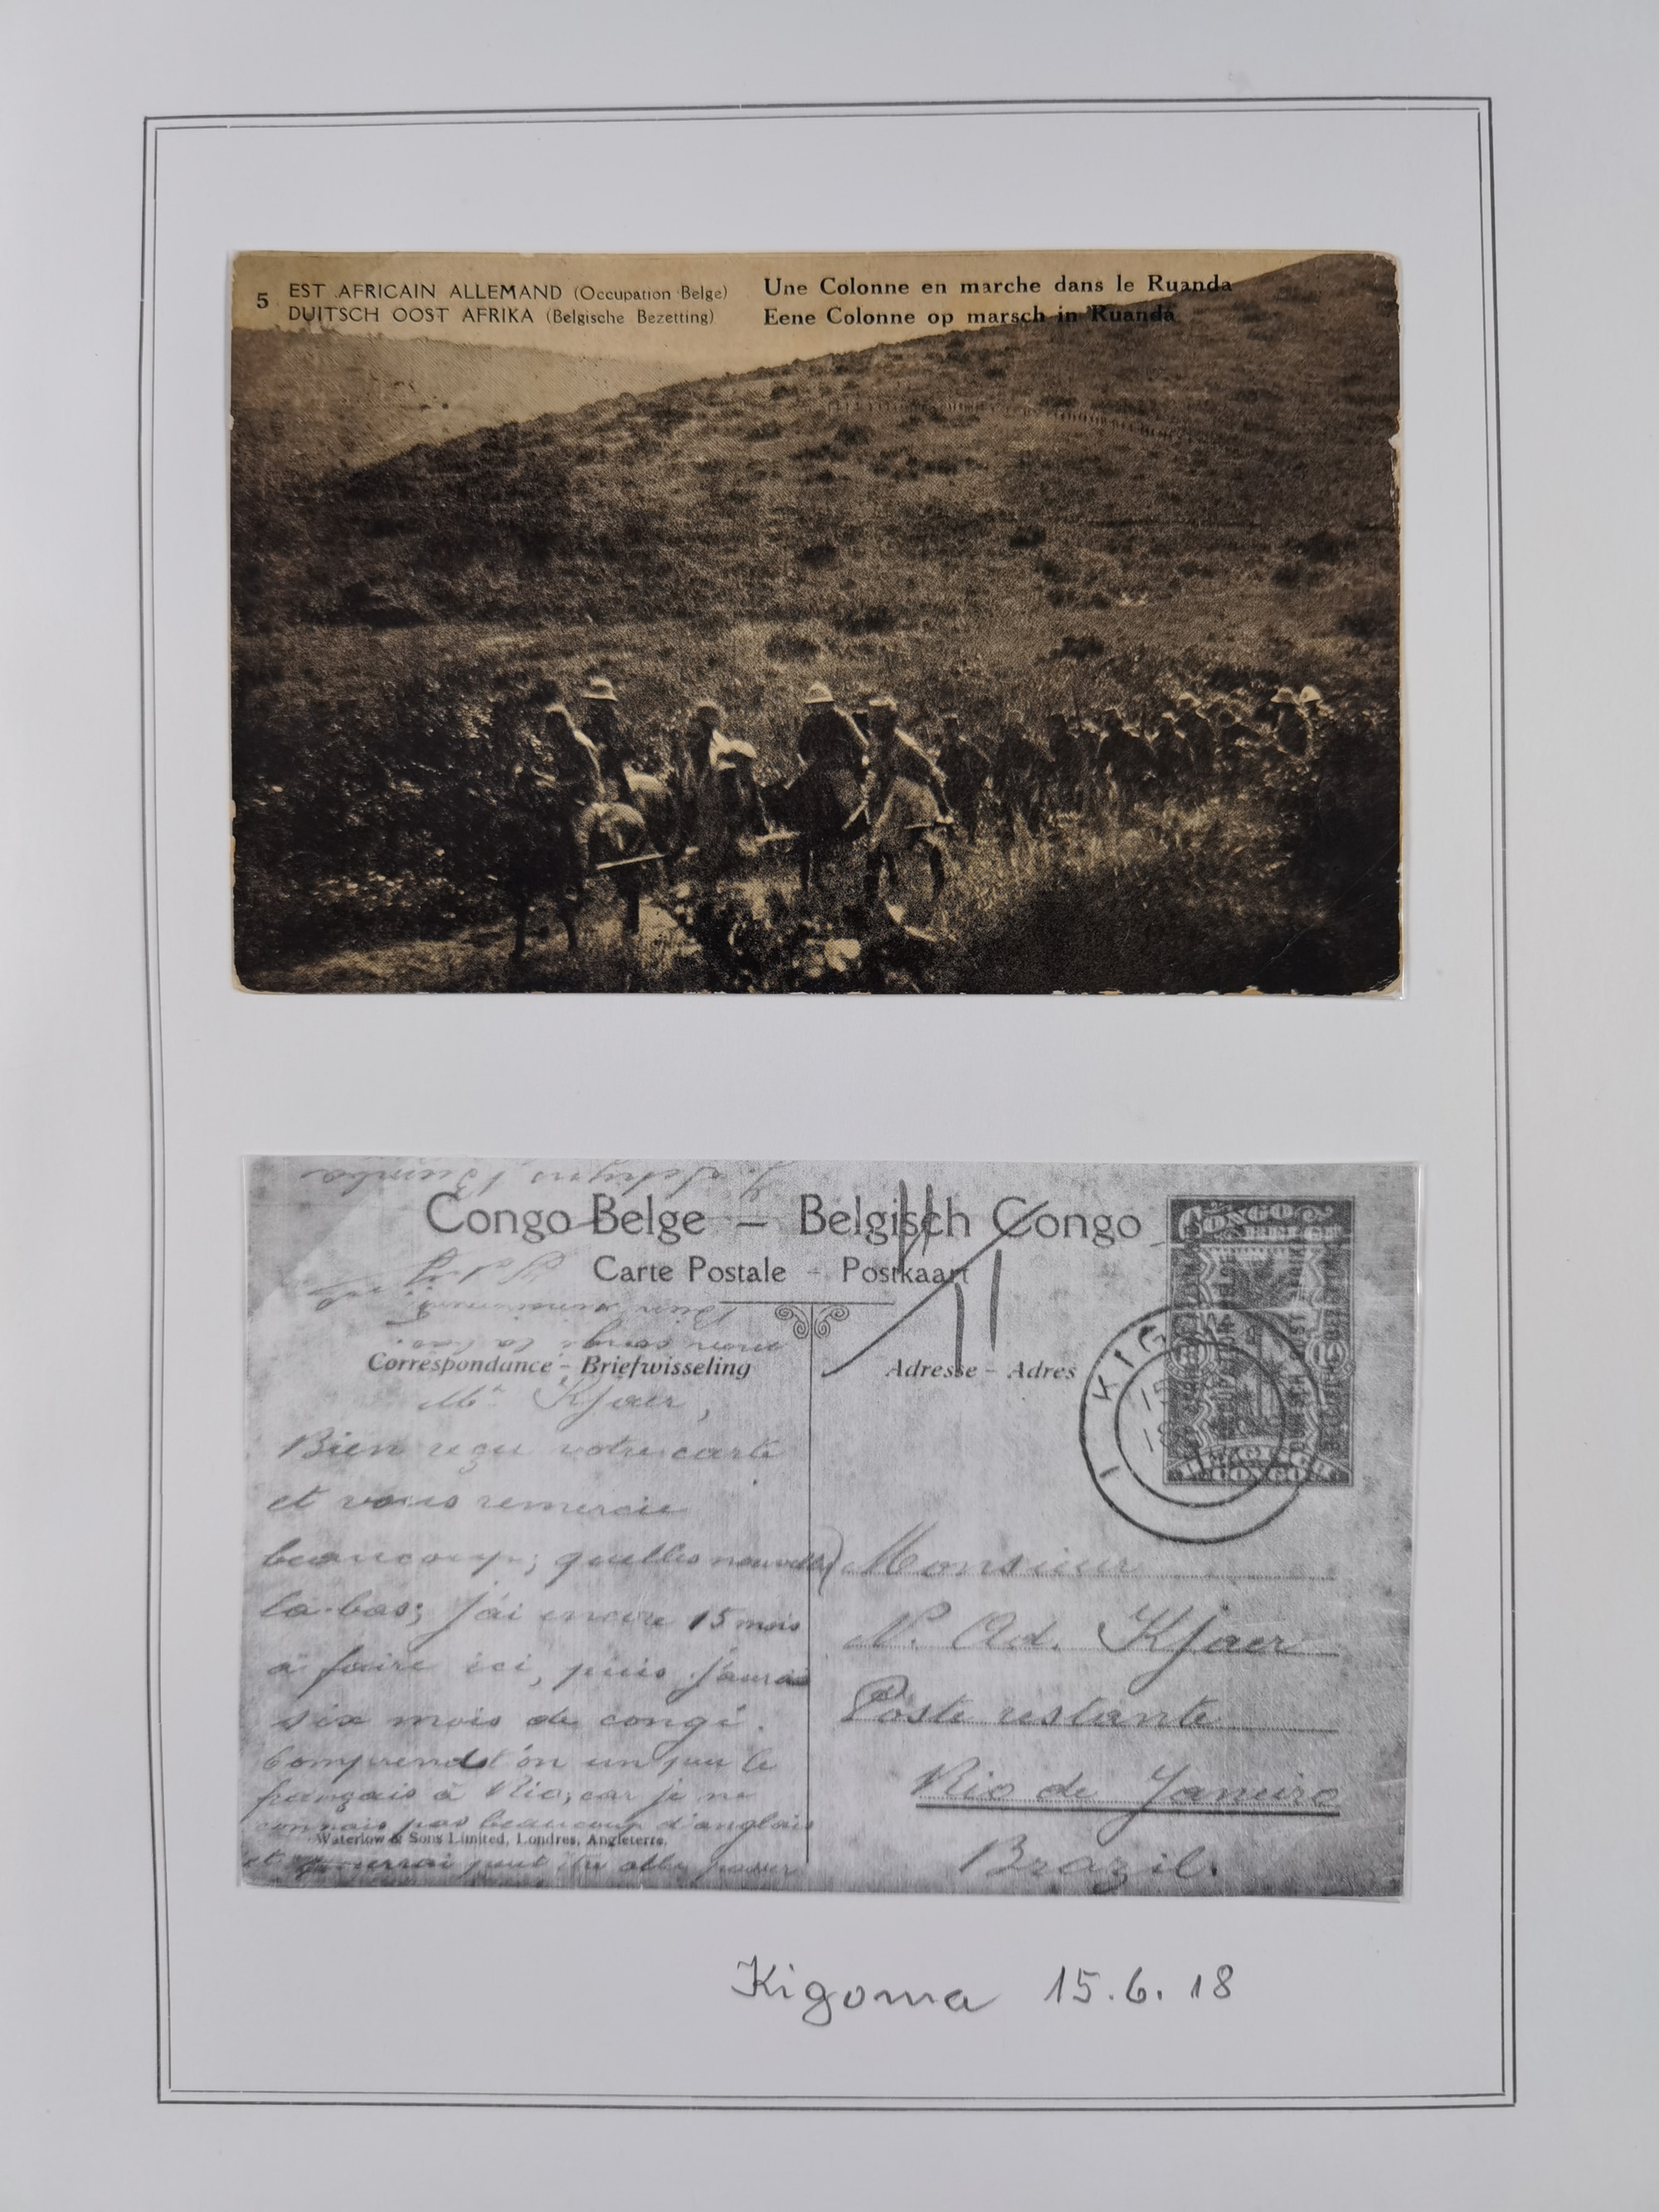 5 EST AFRICAIN ALLEMAND (Occupation Belge)
DUITSCH OOST AFRIKA (Belgische Bezetting)
Une Colonne en marche dans le Ruanda
Eene Colonne op marsch in Ruanda
Congo Belge – Belgisch Congo
Carte Postale – Postkaart
Correspondance – Briefwisseling
Adresse – Adres
CONGO
BELGE
BELGISCH
CONGO
KIGO
Mr Kjaer,
Bien reçu votre carte
et vous remercie
beaucoup; quelles nouvelles
là-bas; j'ai encore 15 mois
à faire ici, puis j'aurai
six mois de congé.
Comprend t'on un peu le
français à Rio, car je ne
connais pas beaucoup d'anglais
et pourrai peut être aller passer
mon congé là bas.
Waterlow & Sons Limited, Londres, Angleterre.
Monsieur
N. Ad. Kjaer
Poste restante
Rio de Janeiro
Brazil.
Kigoma 15.6.18